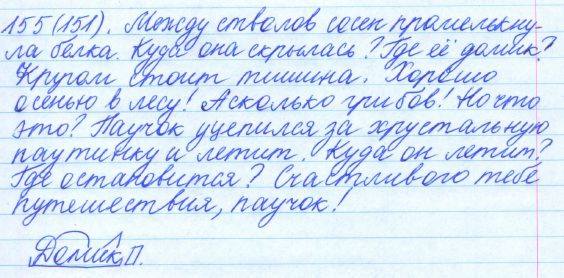 155(151). Между стволов сосен промелькну-
ла белка. Куда она скрылась? Где её домик?
Кругом стоит тишина. Хорошо
осенью в лесу! А сколько грибов! Но что
это? Паучок уцепился за хрустальную
паутинку и летит. Куда он летит?
Где остановится? Счастливого тебе
путешествия, паучок!
Домик, П.